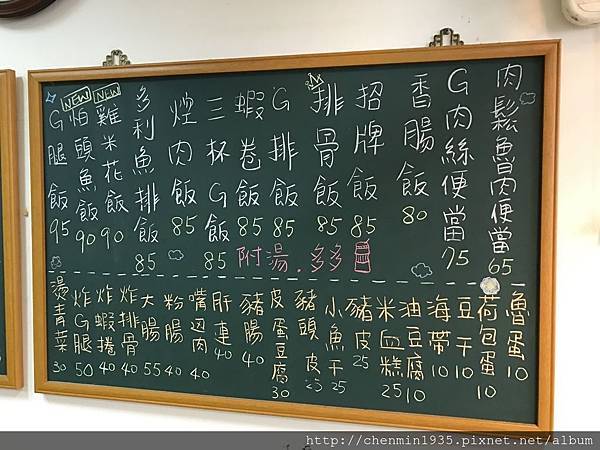 肉鬆魯肉便當65
G肉絲便當75
香腸飯80
招牌飯85
排骨飯85
G排飯85
蝦卷飯85
三杯G飯85
焢肉飯85
多利魚排飯85
NEW
雞米花飯90
NEW
怕頭魚飯90
G腿飯95
附湯.多多
魯蛋10
荷包蛋10
豆干10
海帶10
油豆腐10
米血糕25
豬皮25
小魚干25
豬頭皮25
皮蛋豆腐30
豬腸40
肝連40
嘴边肉40
粉腸40
大腸55
炸排骨40
炸蝦捲40
炸G腿50
燙青菜30
http://chenmin1935.pixnet.net/album